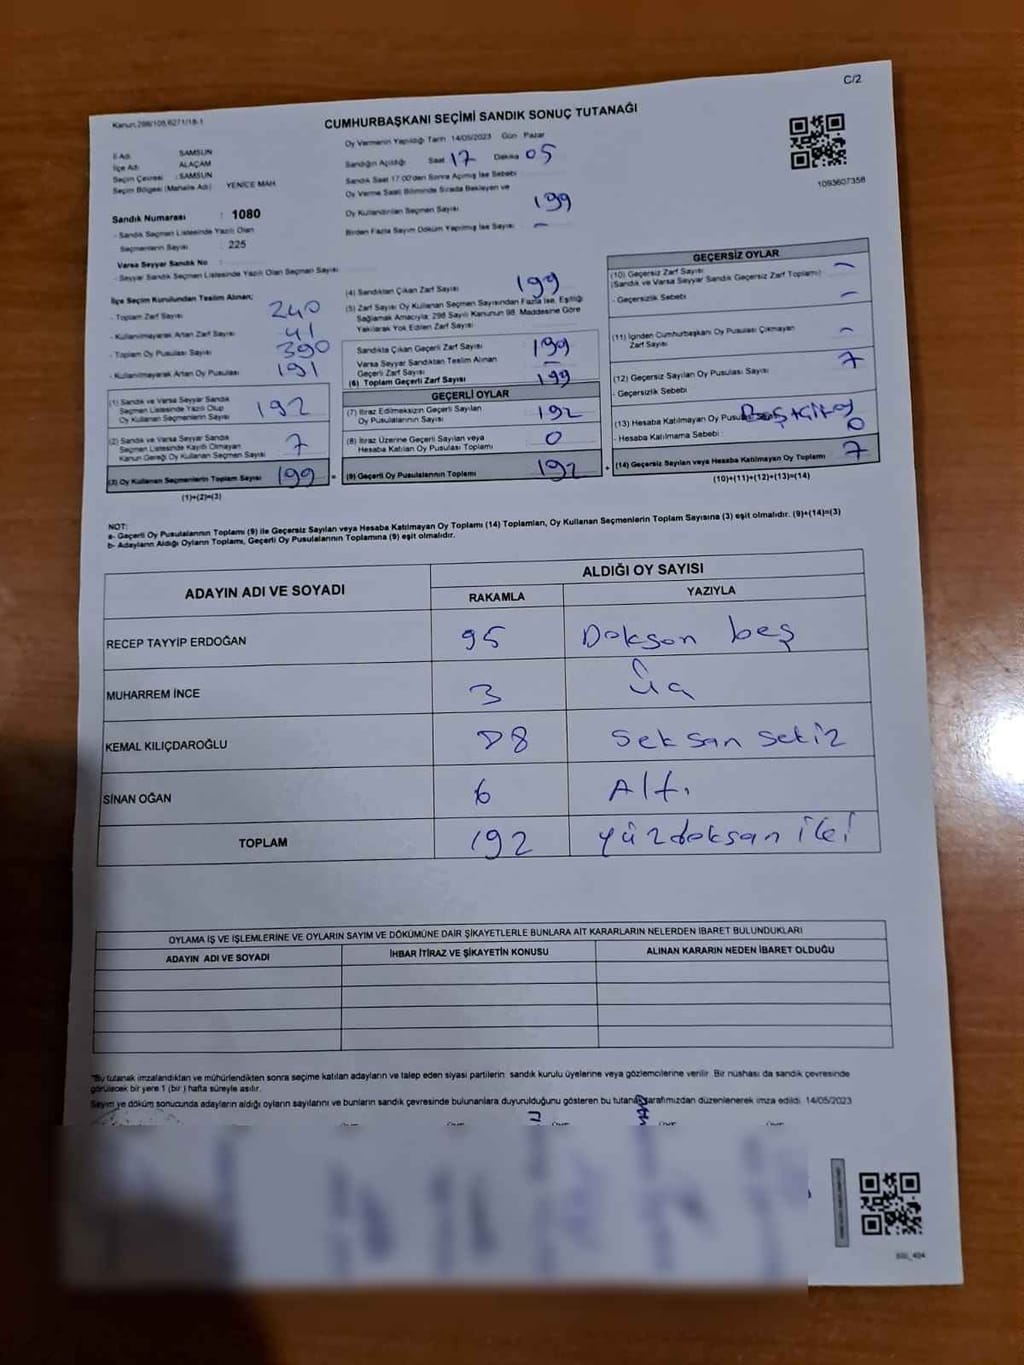 C/2
Kanun 298/108,6271/18-1
CUMHURBAŞKANI SEÇİMİ SANDIK SONUÇ TUTANAĞI
İl Adı : SAMSUN
İlçe Adı : ALAÇAM
Seçim Çevresi : SAMSUN
Seçim Bölgesi (Mahalle Adı) YENİCE MAH.
Oy Vermenin Yapıldığı Tarih 14/05/2023 Gün Pazar
Sandığın Açıldığı Saat 17 Dakika 05
Sandık Saat 17:00'den Sonra Açılmış İse Sebebi
Oy Verme Saati Bitiminde Sırada Bekleyen ve
Oy Kullandırılan Seçmen Sayısı 199
Birden Fazla Sayım Döküm Yapılmış İse Sayısı –
1093607358
Sandık Numarası : 1080
- Sandık Seçmen Listesinde Yazılı Olan
Seçmenlerin Sayısı : 225
Varsa Seyyar Sandık No :
- Seyyar Sandık Seçmen Listesinde Yazılı Olan Seçmen Sayısı
İlçe Seçim Kurulundan Teslim Alınan;
- Toplam Zarf Sayısı 240
- Kullanılmayarak Artan Zarf Sayısı 41
- Toplam Oy Pusulası Sayısı 390
- Kullanılmayarak Artan Oy Pusulası 191
(1) Sandık ve Varsa Seyyar Sandık
Seçmen Listesinde Yazılı Olup
Oy Kullanan Seçmenlerin Sayısı 192
(2) Sandık ve Varsa Seyyar Sandık
Seçmen Listesinde Kayıtlı Olmayan
Kanun Gereği Oy Kullanan Seçmen Sayısı 7
(3) Oy Kullanan Seçmenlerin Toplam Sayısı 199
(1)+(2)=(3)
(4) Sandıktan Çıkan Zarf Sayısı 199
(5) Zarf Sayısı Oy Kullanan Seçmen Sayısından Fazla İse, Eşitliği
Sağlamak Amacıyla; 298 Sayılı Kanunun 98. Maddesine Göre
Yakılarak Yok Edilen Zarf Sayısı
Sandıkta Çıkan Geçerli Zarf Sayısı 199
Varsa Seyyar Sandıktan Teslim Alınan
Geçerli Zarf Sayısı –
(6) Toplam Geçerli Zarf Sayısı 199
GEÇERLİ OYLAR
(7) İtiraz Edilmeksizin Geçerli Sayılan
Oy Pusulalarının Sayısı 192
(8) İtiraz Üzerine Geçerli Sayılan veya
Hesaba Katılan Oy Pusulası Toplamı 0
(9) Geçerli Oy Pusulalarının Toplamı 192
GEÇERSİZ OYLAR
(10) Geçersiz Zarf Sayısı –
(Sandık ve Varsa Seyyar Sandık Geçersiz Zarf Toplamı)
- Geçersizlik Sebebi –
(11) İçinden Cumhurbaşkanı Oy Pusulası Çıkmayan –
Zarf Sayısı
(12) Geçersiz Sayılan Oy Pusulası Sayısı 7
- Geçersizlik Sebebi
(13) Hesaba Katılmayan Oy
- Hesaba Katılmama Sebebi : 0
(14) Geçersiz Sayılan veya Hesaba Katılmayan Oy Toplamı 7
(10)+(11)+(12)+(13)=(14)
NOT:
a- Geçerli Oy Pusulalarının Toplamı (9) ile Geçersiz Sayılan veya Hesaba Katılmayan Oy Toplamı (14) Toplamları, Oy Kullanan Seçmenlerin Toplam Sayısına (3) eşit olmalıdır. (9)+(14)=(3)
b- Adayların Aldığı Oyların Toplamı, Geçerli Oy Pusulalarının Toplamına (9) eşit olmalıdır.
ADAYIN ADI VE SOYADI
ALDIĞI OY SAYISI
RAKAMLA YAZIYLA
RECEP TAYYİP ERDOĞAN 95 Doksan beş
MUHARREM İNCE 3 Üç
KEMAL KILIÇDAROĞLU 88 Seksan sekiz
SİNAN OĞAN 6 Altı
TOPLAM 192 yüzdoksan iki
OYLAMA İŞ VE İŞLEMLERİNE VE OYLARIN SAYIM VE DÖKÜMÜNE DAİR ŞİKAYETLERLE BUNLARA AİT KARARLARIN NELERDEN İBARET BULUNDUKLARI
ADAYIN ADI VE SOYADI İHBAR İTİRAZ VE ŞİKAYETİN KONUSU ALINAN KARARIN NEDEN İBARET OLDUĞU
"Bu tutanak imzalandıktan ve mühürlendikten sonra seçime katılan adayların ve talep eden siyasi partilerin sandık kurulu üyelerine veya gözlemcilerine verilir. Bir nüshası da sandık çevresinde
görülecek bir yere 1 (bir) hafta süreyle asılır.
Sayım ve döküm sonucunda adayların aldığı oyların sayılarını ve bunların sandık çevresinde bulunanlara duyurulduğunu gösteren bu tutanak tarafımızdan düzenlenerek imza edildi. 14/05/2023